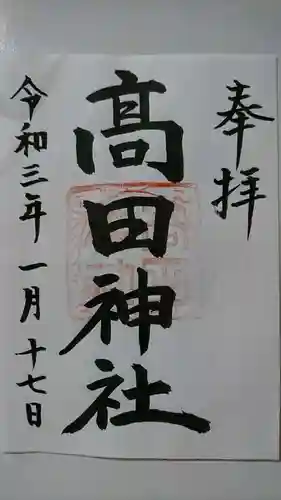 奉拝
髙田神社
令和三年一月十七日